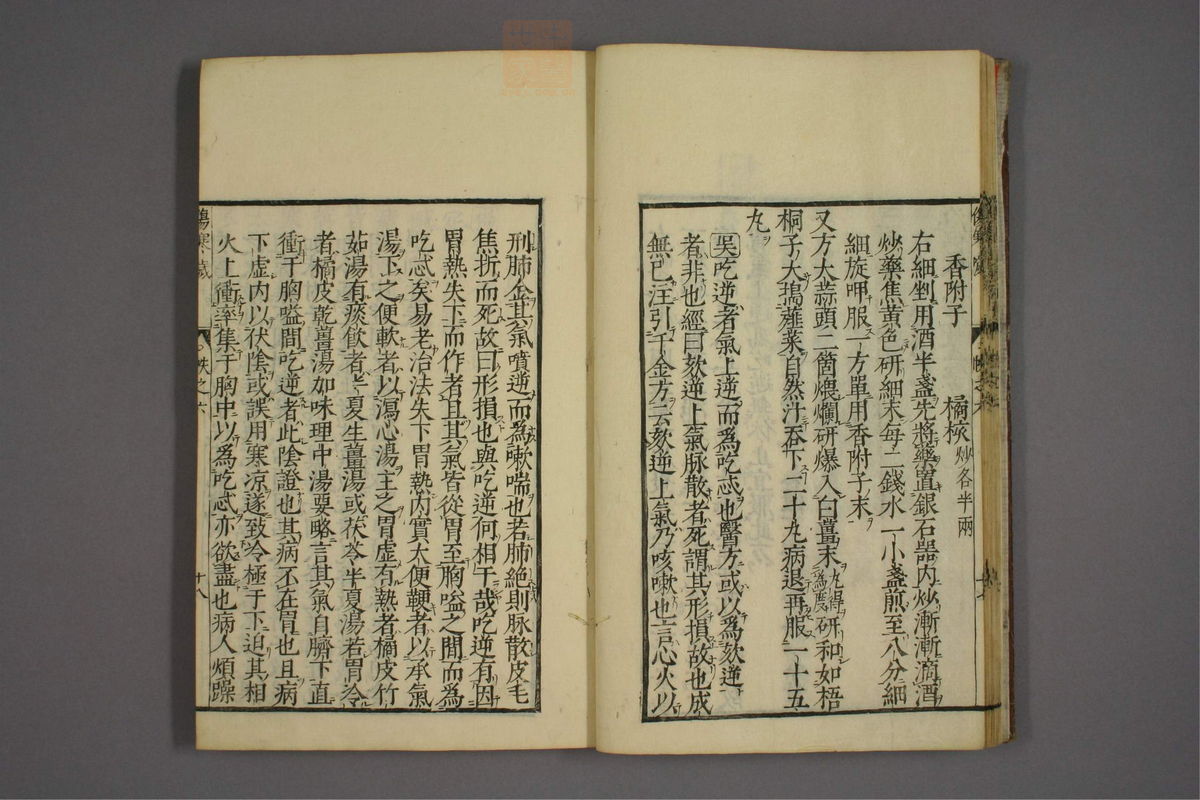 香附子　橘核炒各半兩
右細剉用酒半盞先將藥置銀石器內炒漸漸滴酒
炒藥焦黃色研細末每二錢水一小盞煎至八分細
細旋呷服一方單用香附子末
又方大蒜頭二箇煨爛研爆入白薑末九得為農研和如梧
桐子大搗薤菜自然汁吞下二十九病退再服一十五
丸
吳吃逆者氣上逆而為吃忒也醫方或以為欬逆
者非也經曰欬逆上氣脉散者死謂其形損故也成
無已注引千金方云欬逆上氣乃咳嗽也言心火以
刑肺金其氣噴逆而為嗽喘也若肺絕則脉散皮毛
焦折而死故曰形損也與吃逆何相干哉吃逆有因
胃熱失下而作者且其氣皆從胃至胸嗌之間而為
吃忒矣易老治法失下胃熱內實大便鞕者以承氣
湯下之便軟者以瀉心湯主之胃虛有熱者橘皮竹
茹湯有痰飲者半夏生薑湯或茯苓半夏湯若胃冷
者橘皮乾薑湯加味理中湯要略言其氣自臍下直
衝于胸嗌間吃逆者此陰證也其病不在胃也且病
下虛內以伏陰或誤用寒凉遂致冷極于下迫其相
火上衝率集于胸中以為吃忒亦欲盡也病人煩躁
帙之六
十八